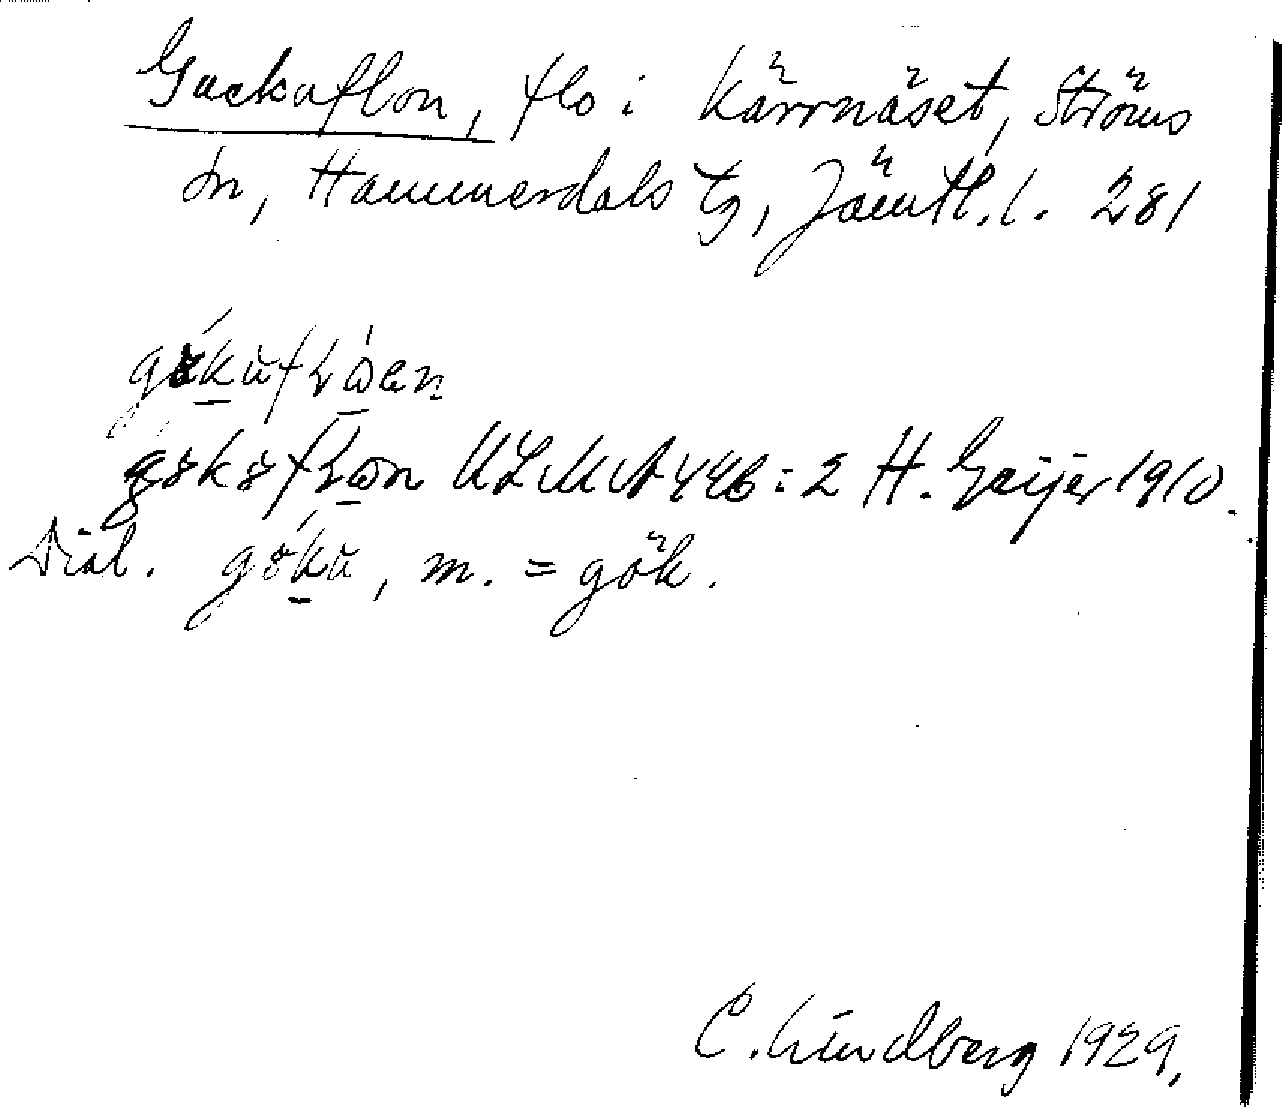 Gackaflon, flo i Kärrnäset, Ströms
sn, Hammerdals tg, Jämtl. l. 281
gɷ́kuflɷen
gɷkɷflɷn ULMA 446:2 H. Geijer 1910.
Dial. gɷ́ku, m. = gök.
C. Lindberg 1929,